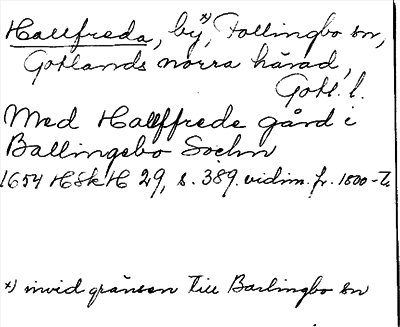 Hallfreda, by *), Follingbo sn,
Gotlands norra härad,
Gotl. l.
Med Hallffrede gård i
Ballingebo Sochn
1654 HSkH 29, s. 389. vidim. fr. 1500-t.
*) invid gränsen till Barlingbo sn